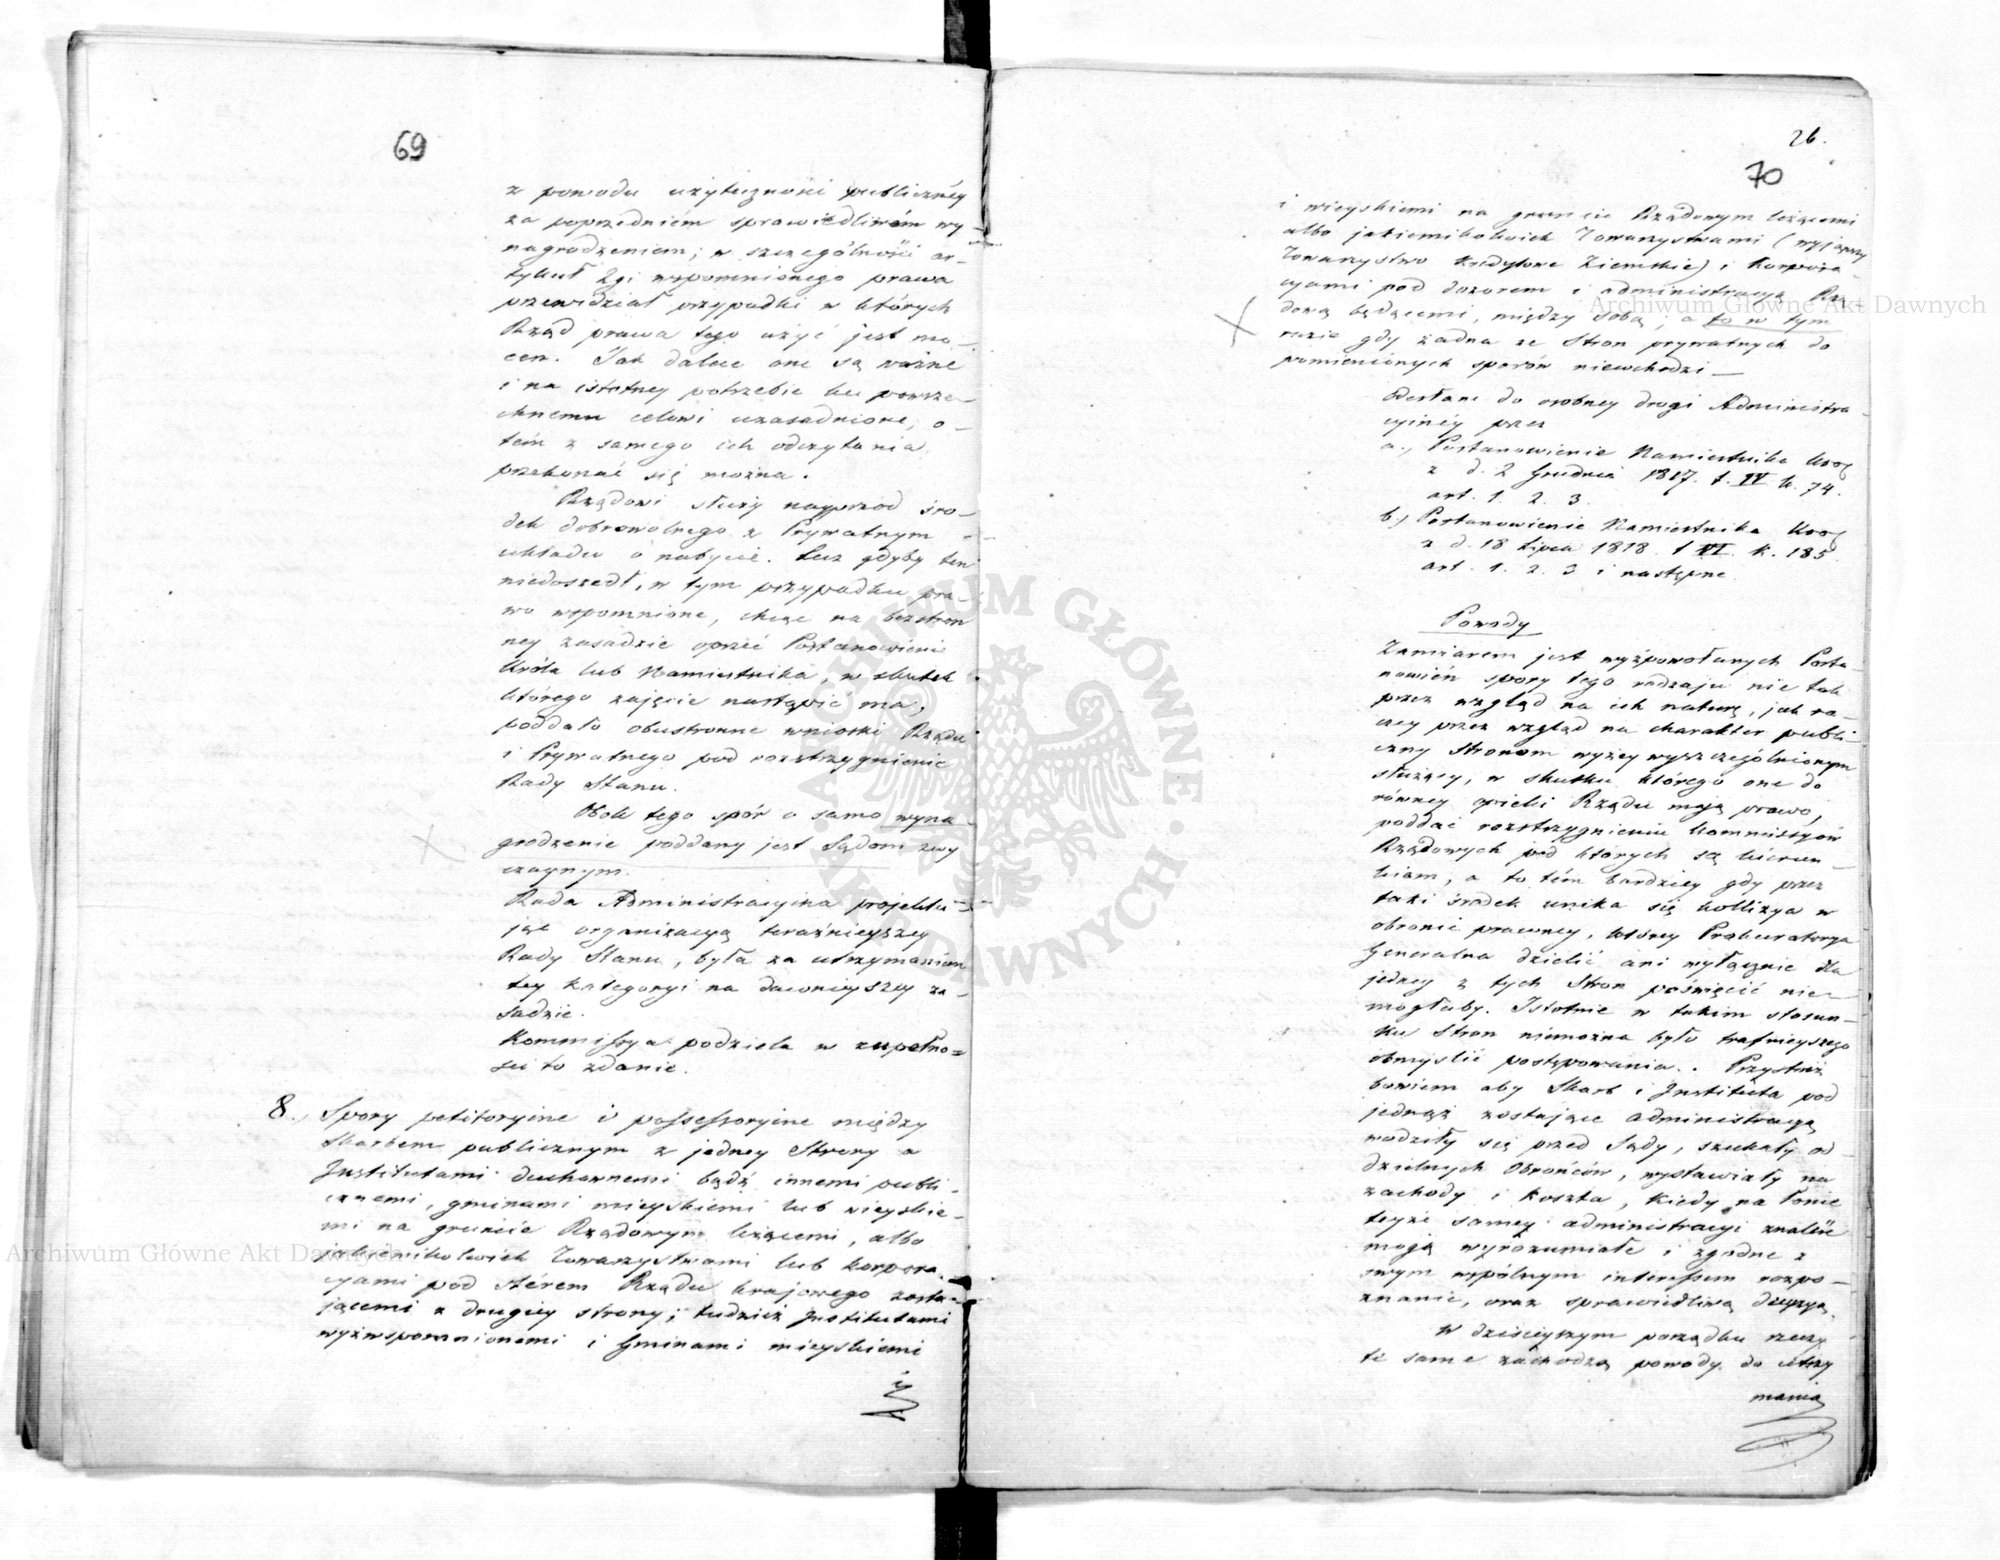 69
z powodu użyteczności publicznéy
za poprzedniém sprawiedliwém wy-
nagrodzeniem; w szczególności ar-
tykuł 2gi wspomnionego prawa
przewidział przypadki w których
Rząd prawa tego użyć jest mo-
cen. Jak dalece one są ważne
i na istotney potrzebie ku powsze-
chnemu celowi uzasadnione, o-
tém z samego ich odczytania
przekonać się można.
Rządowi służy naprzod śro-
dek dobrowolnego z Prywatnym
układu o nabycie. Lecz gdyby ten
niedoszedł, w tym przypadku pra-
wo wspomnione, chcąc na bezstron
ney zasadzie oprzeć Postanowienie
Króla lub Namiestnika, w skutek
którego zajęcie nastąpić ma,
poddało obustronne wnioski Rządu
i Prywatnego pod rozstrzygnienie
Rady Stanu.
Obok tego spór o samo wyna-
grodzenie poddany jest Sądom zwy
czaynym.
Rada Administracyina projektu-
jąc organizacyą teraźnieyszey
Rady Stanu, była za utrzymaniem
tey kategoryi na dawnieyszey za-
sadzie.
Kommissya podziela w zupełno=
ści to zdanie.
8. Spory petitoryine i possessoryine między
Skarbem publicznym z jedney Strony a
Institutami duchownemi bądź innemi publi-
cznemi, gminami mieyskiemi lub wieyskie-
mi na gruncie Rządowym leżącemi, albo
jakiemikolwiek Towarzystwami lub korpora-
cyami pod stérem Rządu krajowego zosta-
jącemi z drugiey strony; tudzież Institutami
wyżwspomnionemi i Gminami mieyskiemi
i
26.
70
i wieyskiemi na gruncie Rządowym leżącemi
albo jakiemikolwiek Towarzystwami (wyjąwszy
Towarzystwo Kredytowe Ziemskie) i Korpora-
cyami pod dozorem i administracyą Rzą-
dową będącemi, między sobą; a to w tym
razie gdy żadna ze Stron prywatnych do
pomienionych sporów niewchodzi —
Odesłane do osobney drogi Administra-
cyinéy przez
a., Postanowienie Namiestnika Król
z d. 2 Grudnia 1817. t. IV k. 74.
art. 1. 2. 3.
b., Postanowienie Namiestnika Król
z d. 18 Lipca 1818. t VI. k. 185
art. 1. 2. 3 i następne.
Powody
Zamiarem jest wyżpowołanych Posta-
nowień spory tego rodzaju nie tak
przez wzgląd na ich naturę, jak ra-
czey przez wzgląd na charakter publi-
czny Stronom wyżey wyszczególnionym
służący, w skutku którego one do
równey opieki Rządu mają prawo,
poddać rozstrzygnieniu Kommissyów
Rządowych pod których są kierun-
kiem, a to tém bardziey gdy przez
taki środek unika się kollizya w
obronie prawney, którey Prokuratorya
Generalna dzielić ani wyłącznie dla
jedney z tych Stron poświęcić nie-
mogłaby. Istotnie w takim stosun-
ku Stron niemożna było trafnieyszego
obmyślić postępowania. Przystoiż
bowiem aby Skarb i Instituta pod
jednąż zostające administracyą
wodziły się przed Sądy, szukały od-
dzielnych Obrońców, wystawiały na
zachody i koszta, kiedy na łonie
teyże samey administracyi znaleść
mogą wyrozumiałe i zgodne z
swym wspólnym interessem rozpo-
znanie, oraz sprawiedliwą decyzyą.
W dzisieyszym porządku rzeczy
te same zachodzą powody do utrzy
mania
Archiwum Główne Akt Dawnych
Archiwum Główne Akt Dawnych
ARCHIWUM GŁÓWNE · AKT DAWNYCH ·